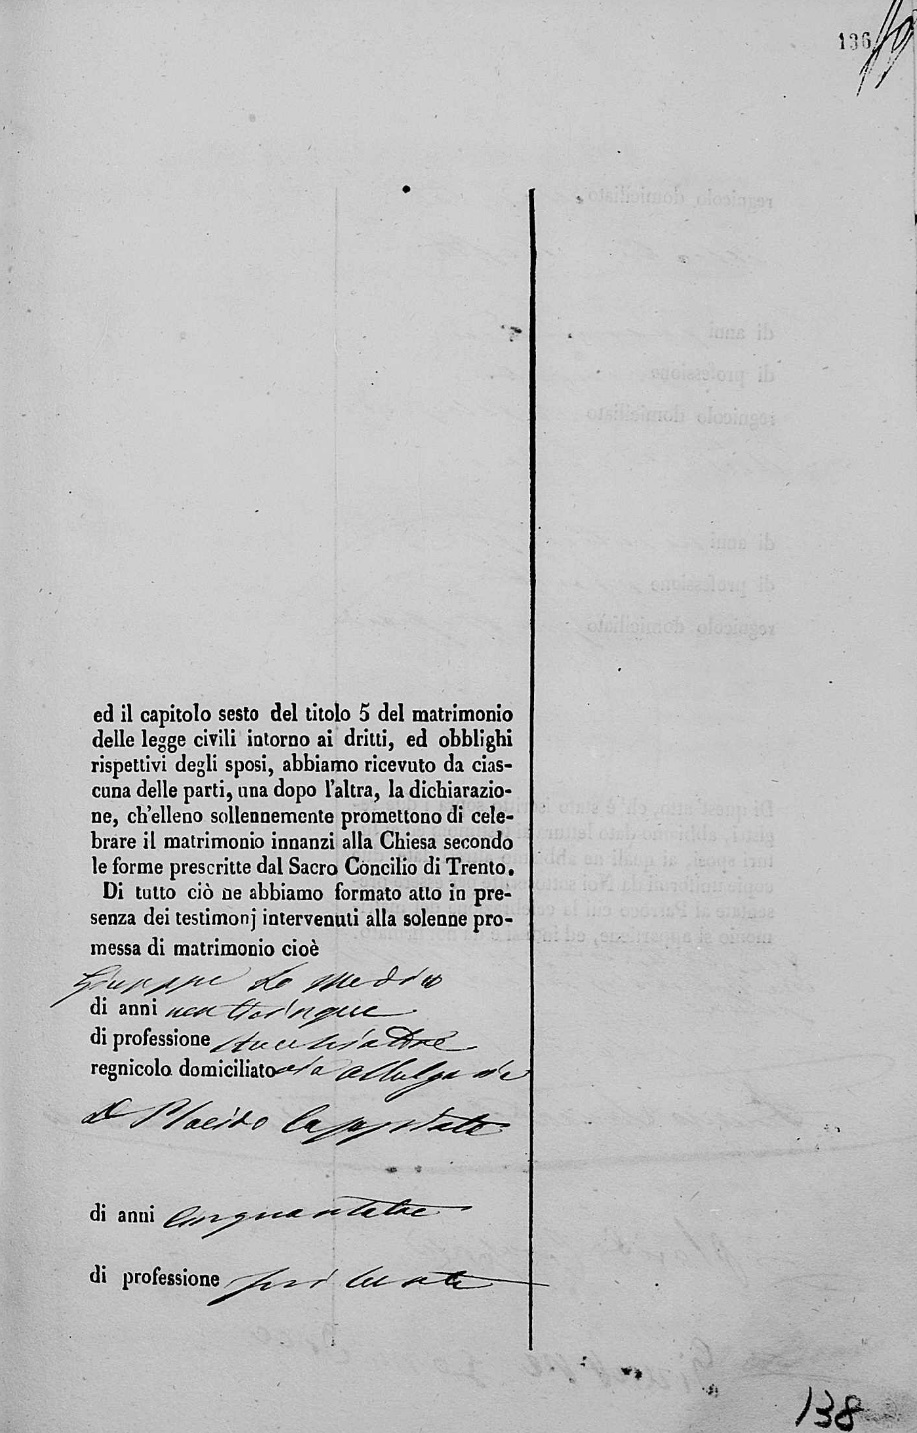 136
ed il capitolo sesto del titolo 5 del matrimonio
delle legge civili intorno ai dritti, ed obblighi
rispettivi degli sposi, abbiamo ricevuto da cias-
cuna delle parti, una dopo l'altra, la dichiarazio-
ne, ch'elleno sollennemente promettono di cele-
brare il matrimonio innanzi alla Chiesa secondo
le forme prescritte dal Sacro Concilio di Trento.
Di tutto ciò ne abbiamo formato atto in pre-
senza dei testimonj intervenuti alla solenne pro-
messa di matrimonio cioè
Giuseppe Lo Medico
di anni venticinque
di professione
regnicolo domiciliato
D Placido Cappitate
di anni cinquantatre
di professione
138